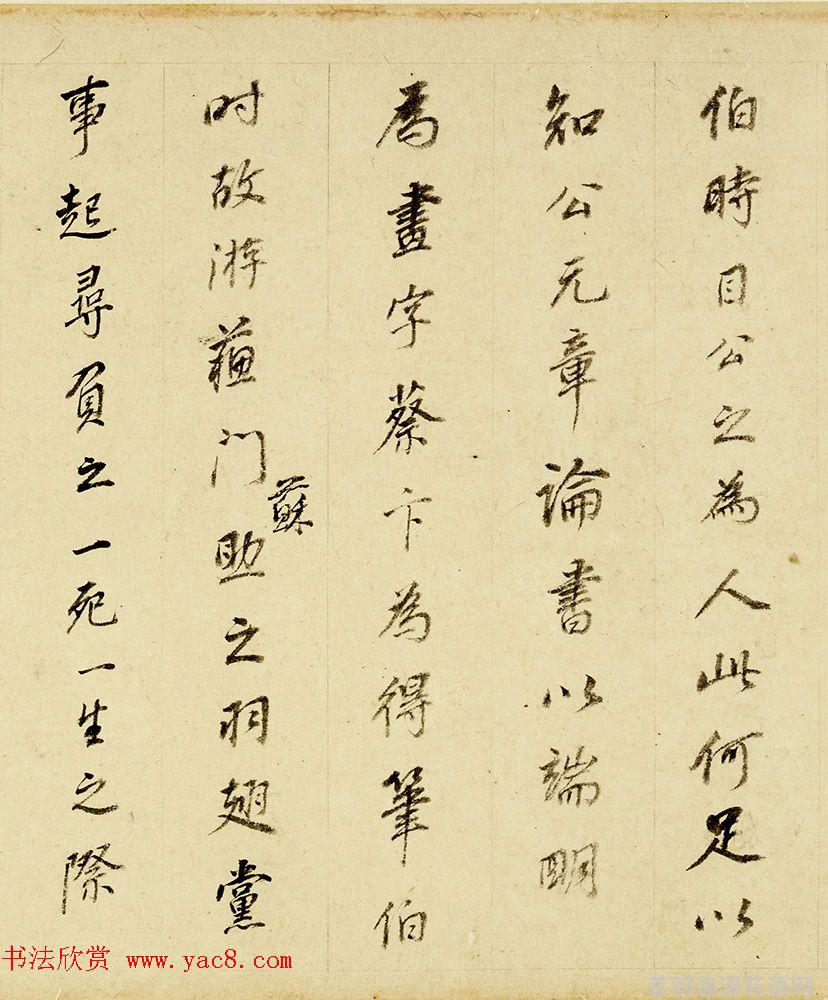 伯時目公之為人此何足以
知公元章論書以端明
為畫字蔡卞為得筆伯
时故游蘓门助之羽翅黨
蘇
事起尋負之一死一生之際
书法欣赏 www.yac8.com